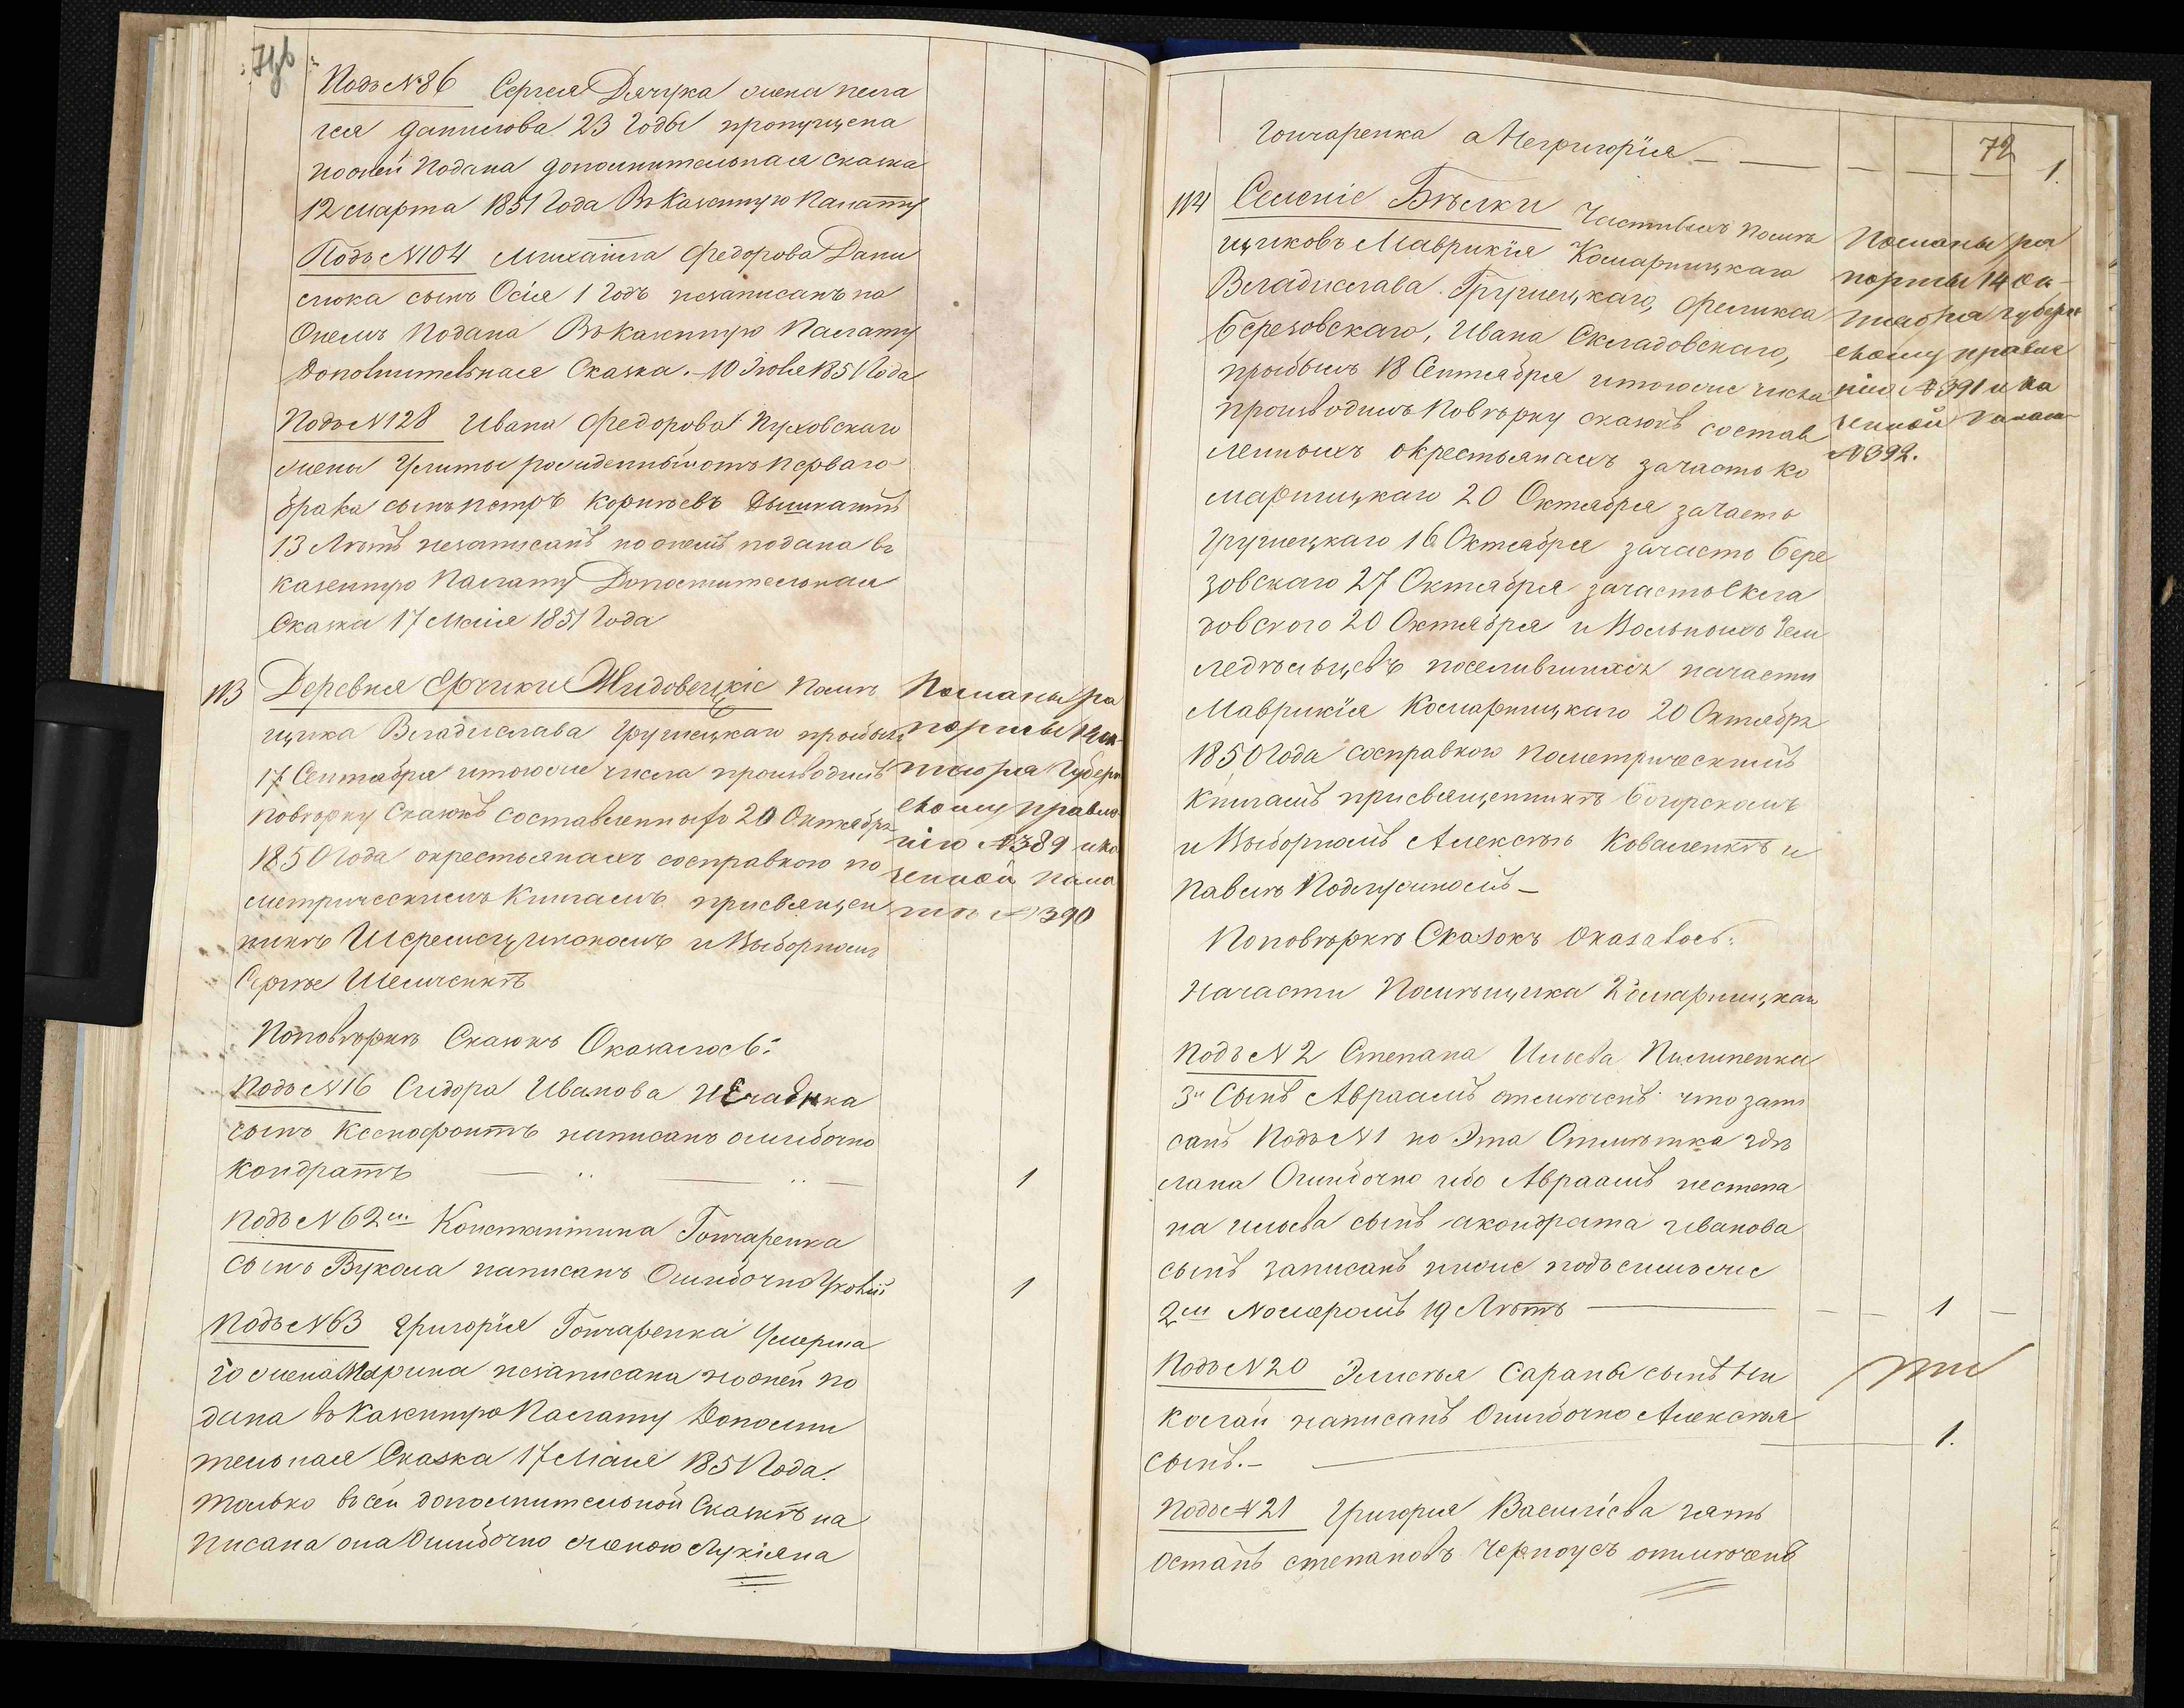 Подъ №86 Сергея Дячука жена пела
гея данилова 23 Годы пропущена
поонеи Подана дополнительная сказка
12 марта 1851 Года Въ Казенную Палатту
Подъ №104 Михаила Федорова Дани
люка сынъ Осія 1 Годъ незаписанъ по
Онемъ Подана Въ Казенную Палату
Дополнительная Сказка. 10 Іюля 1851 Года
Подъ №128 Ивана Федорова Пуховскаго
жены Улиты рожденный отъ Перваго
брака сынъ петръ Корнѣевъ
13 Лѣтъ незаписанъ по онемъ подана въ
казенную Палату Дополнительная
Сказка 17 Маія 1851 Года
113 Деревня Ерчики Жидовецкіе Помѣ
щика Владислава Грушецкаго прибылъ
17 Сентября итогоже числа производилъ
повѣрку Сказокъ составленныхъ 20 Октября
1850 Года окрестьянахъ сосправкою по
метрическимъ Книгамъ присвящен
никѣ и Выборномъ
Сергѣе Шевченкѣ
Посланы ра
порты 14 ок
тября Губерн
скому правле
нію №389 и ка
зенной пала
тѣ №390
Поповѣркѣ Сказокъ Оказалось:
Подъ №16 Сидора Иванова
сынъ Ксенофонтъ написанъ ошибочно
Кондратъ 1
подъ №62м Константина Гончаренка
сынъ Вукола написанъ Ошибочно 1
Подъ №63 Григорія Гончаренка Умерша
го жена Марина незаписана поонеи по
дана въ Казенную Палату Дополни
тельная Сказка 17 Маія 1851 Года.
только въ сеи дополнительнои Сказкѣ на
писана она Ошибочно женою Лукіяна
72
Гончаренка а Негригорія 1.
114 Селеніе Бѣлки Частныхъ помѣ
щиковъ Маврикія Комарницкаго
Владислава Грушецкаго, Феликса
Березовскаго, Ивана Складовскаго,
прибылъ 18 Сентября итогоже числа
производилъ Повѣрку сказокъ состав
ленныхъ окрестьянахъ зачасть Ко
марницкаго 20 Октября зачасть
Грушецкаго 16 Октября зачасть Бере
зовскаго 27 Октября зачасть Скла
довского 20 Октября и Вольныхъ Зем
ледѣльцевъ поселившихся начасти
Маврикія Комарницкаго 20 Октября
1850 Года сосправкою пометрическимъ
Книгамъ присвященникѣ
и Выборномъ Алексѣѣ Коваленкѣ и
Павлѣ
Посланы ра
порты 14 ок
тября губерн
скому правле
нію №391 и ка
зенной палат
№392.
Поповѣркѣ Сказокъ Оказалось:
Начасти Помѣщика Комарницкаго
Подъ №2 Степана Ильева Пилипенка
3й Сынъ Авраамъ отмѣченъ что запи
санъ Подъ №1 но Эта Отмѣтка здѣ
лана Ошибочно ибо Авраамъ нестепа
на ильева сынъ акондрата иванова
сынъ записанъ ниже подъ симъже
2м Номеромъ 19 Лѣтъ 1
Подъ №20 Сарана сынъ Ни
колай написанъ Ошибочно Алексѣя
сынъ. 1.
Подъ №21 Григорія Василіева зять
Остапъ степановъ Черноусъ отмѣченъ